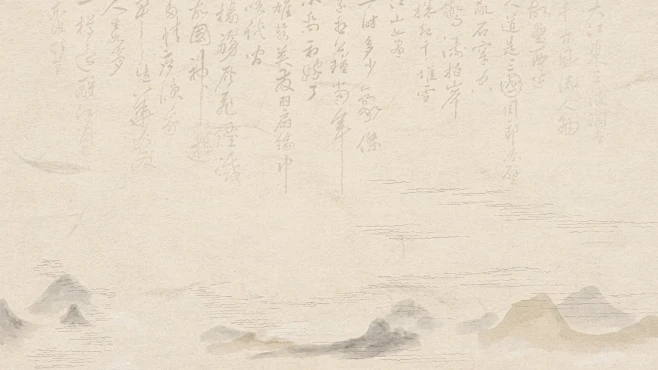 大江東去浪淘盡
千古風流人物
故壘西邊
人道是三國周郎赤壁
亂石穿空
驚濤拍岸
捲起千堆雪
江山如畫
一時多少豪傑
想公瑾當年
小喬初嫁了
雄姿英發羽扇綸巾
談笑間
檣櫓灰飛煙滅
故國神遊
多情應笑我
早生華髮
人生如夢
一樽還酹江月